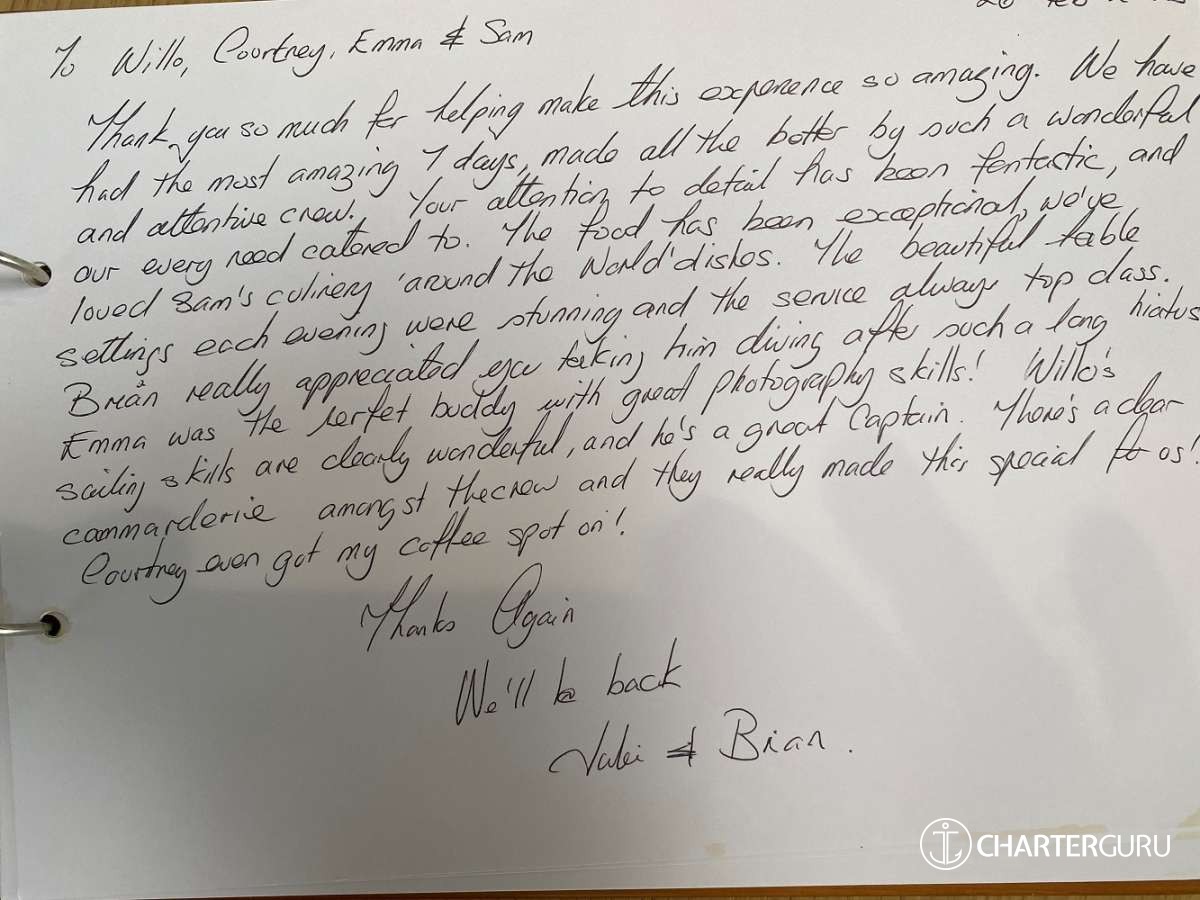 To Willo, Courtney, Emma & Sam
Thank you so much for helping make this experience so amazing. We have
had the most amazing 7 days, made all the better by such a wonderful
and attentive crew. Your attention to detail has been fantastic, and
our every need catered to. The food has been exceptional, we've
loved Sam's culinery 'around the World' dishes. The beautiful table
settings each evening were stunning and the service always top class.
Brian really appreciated you taking him diving after such a long hiatus
Emma was the perfet buddy with great photography skills! Willo's
sailing skills are clearly wonderful, and he's a great Captain. There's a clear
commarderie amongst the crew and they really made this special for us!
Courtney even got my coffee spot on!
Thanks Again
We'll be back
& Brian.
CHARTERGURU